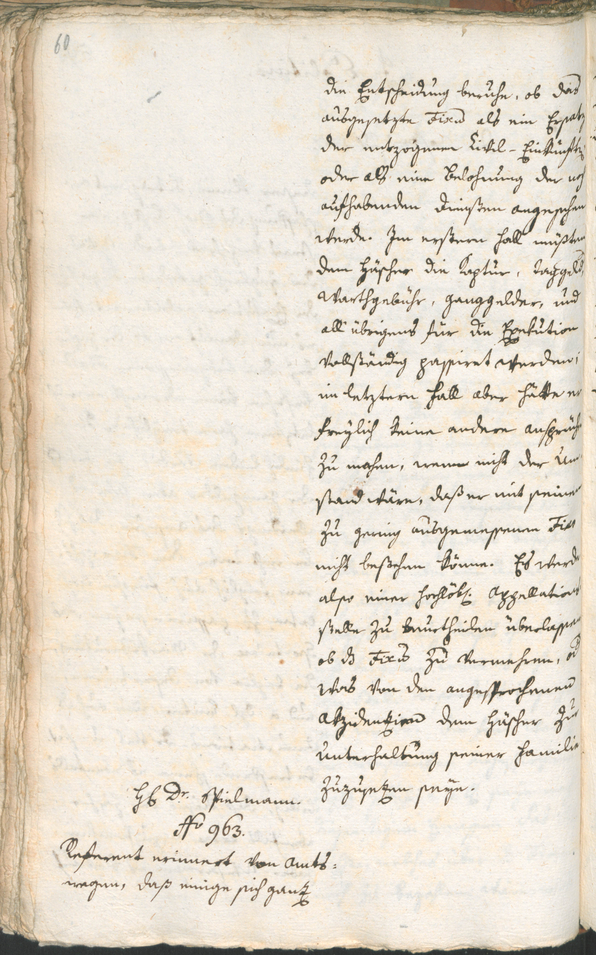 60
die Entscheidung beruhe, ob das
ausgesetzte Fixum als ein Ersatz
der entzogenen Civil-Einkünfte
oder als eine Belohnung der noch
aufhabenden diensten angesehen
werde. Im erstern fall müßten
dem Häscher die Captur, Taggeld,
Warthgebühr, ganggelder, und
all übrigens für die Exekution
vollständig passiret werden;
im letztern fall aber hätte er
freylich keine andere ansprüche
zu machen, wenn nicht der Um
stand wäre, daß er mit seinem
zu gering ausgemessenen Fixo
nicht bestehen könne. Es werde
also einer hochlöbl. Appellations
stelle zu beurtheilen überlassen
ob ds Fixum zu vermehren, od
was von den angesprochenen
Akzidentien dem Häscher zur
unterhaltung seiner Familie
zuzusetzen seye.
H Dr. Spielmann.
No 963.
Referent erinnert von Amts-
wegen, daß einige sich ganz